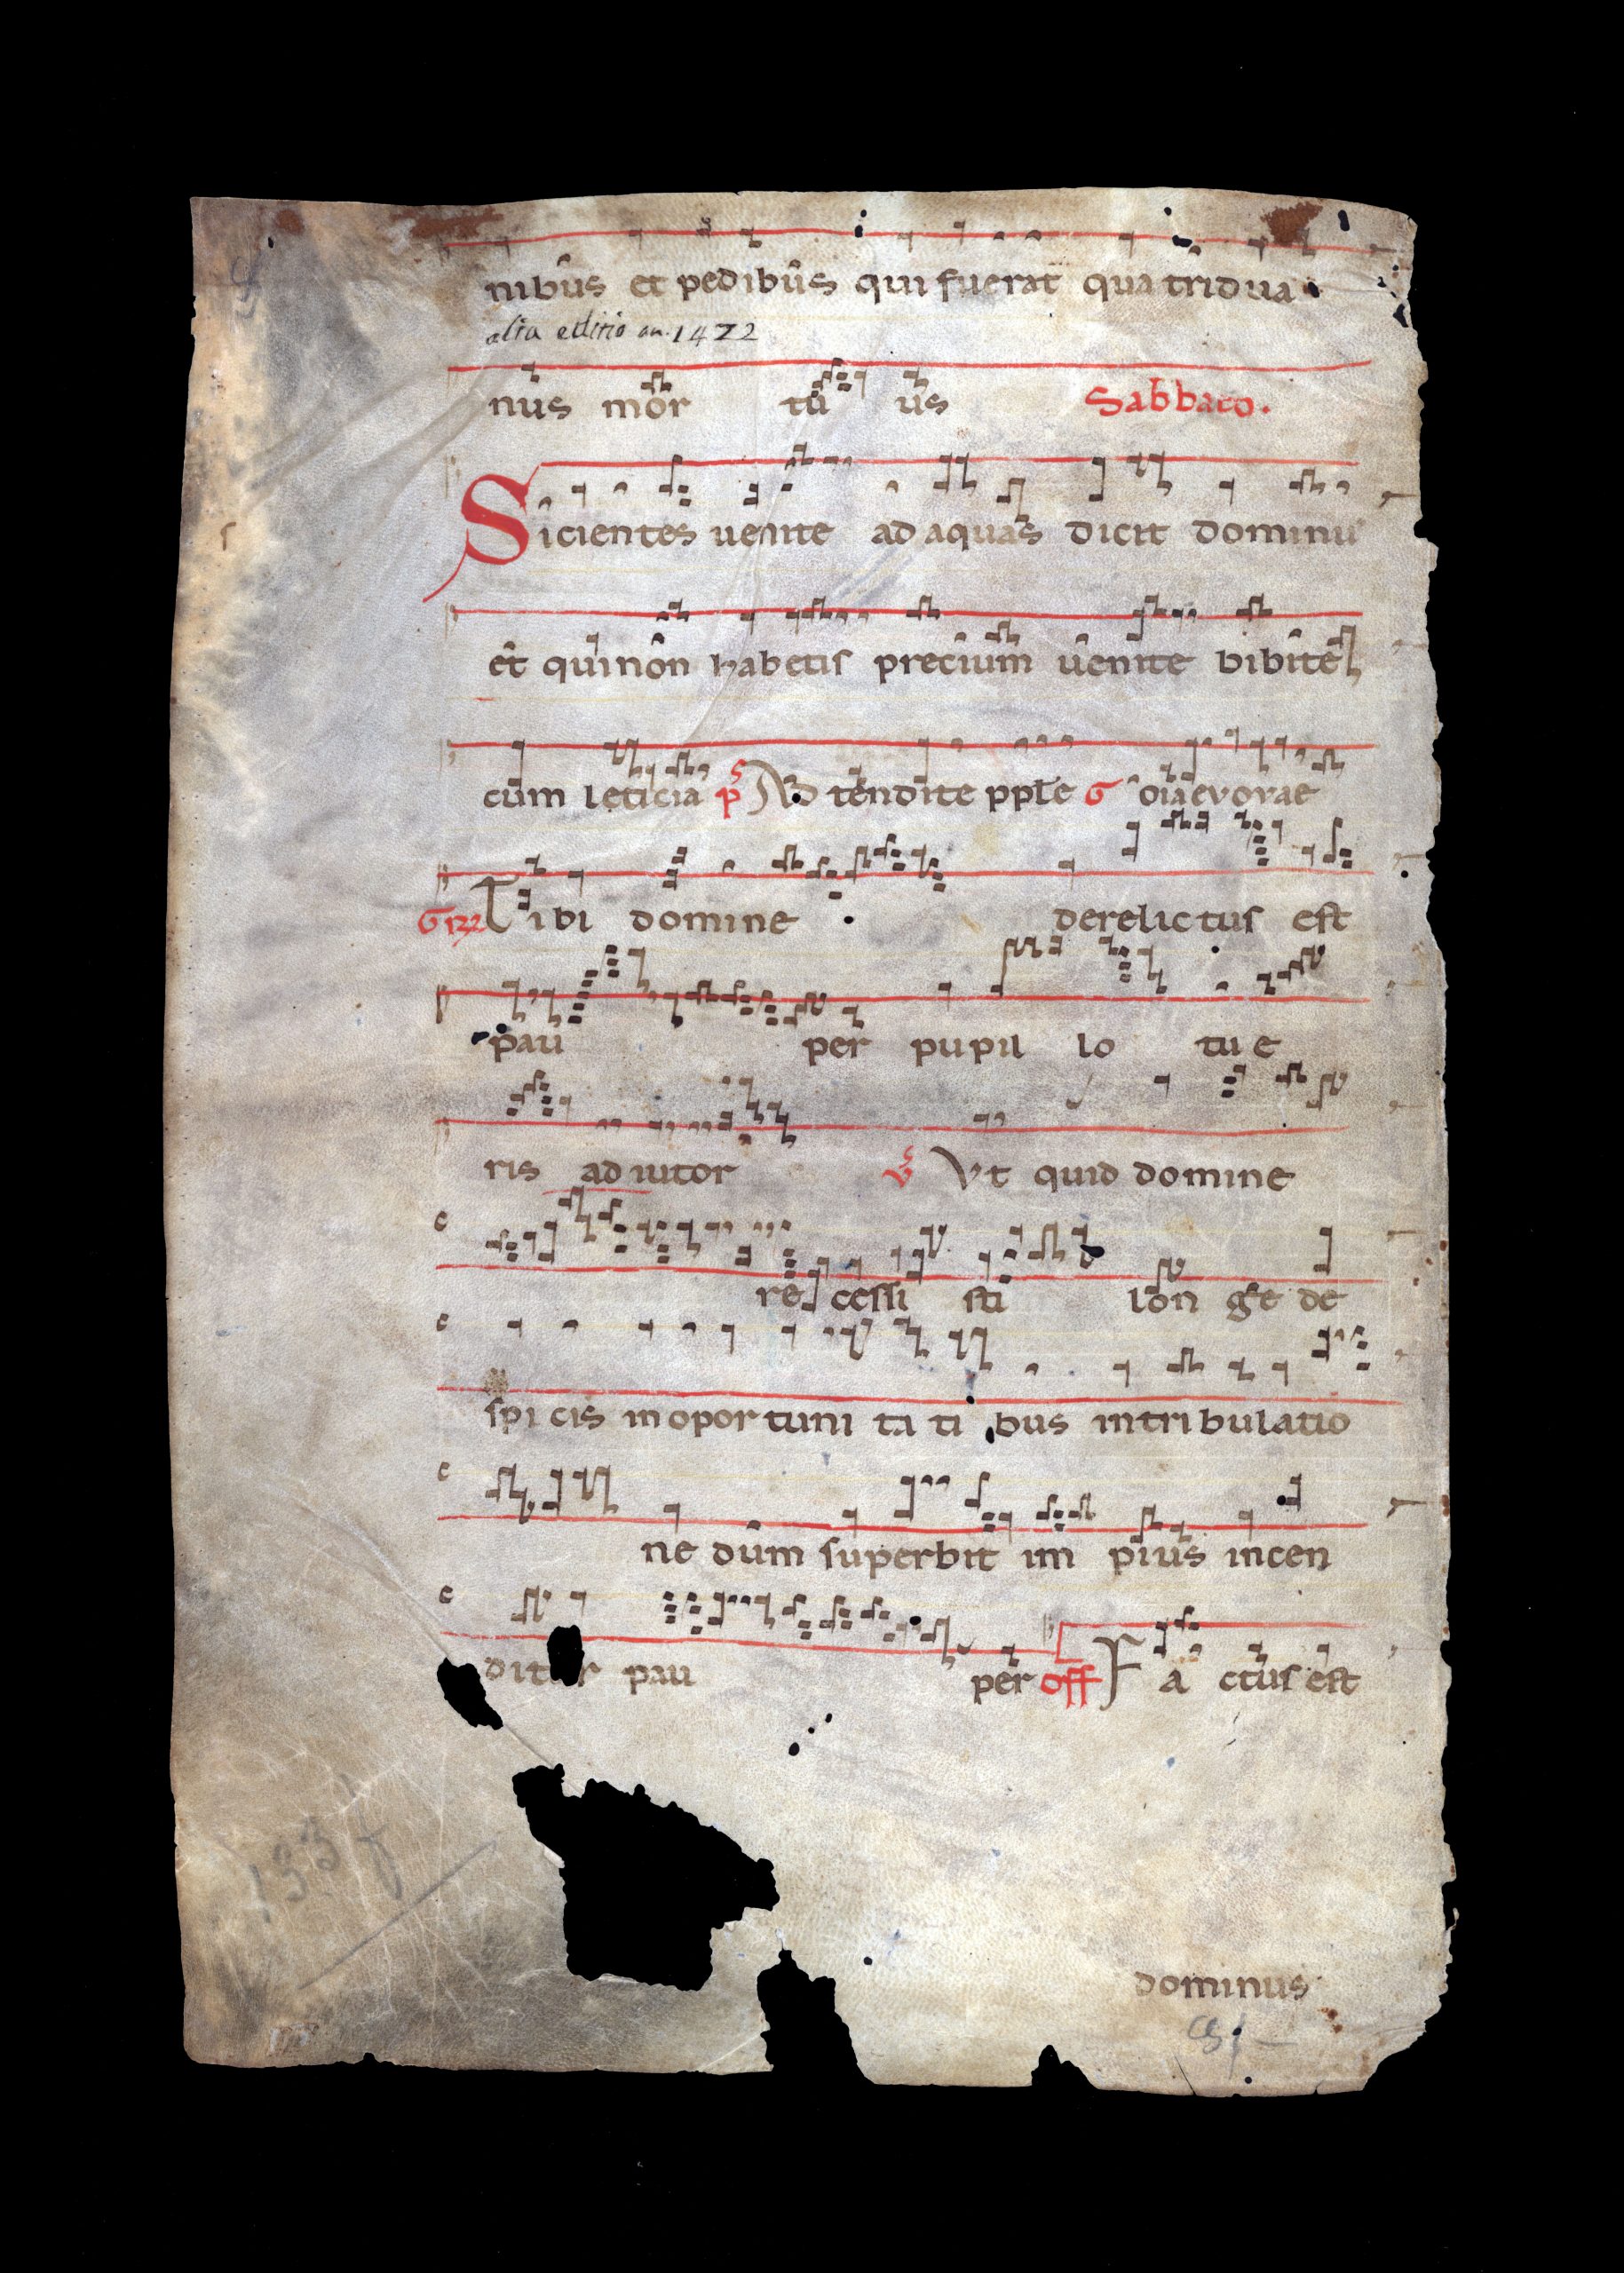 nibus et pedibus qui fuerat qua tridua
alia editio an. 1472
nus mor tu us Sabbato.
Sicientes uenite ad aquas dicit dominu
et qui non habetis precium uenite bibite
cum leticia ps Ad tendite pple G oia evovae
Gr Tibi domine derelictus est
pau per pupil lo tu e
ris ad iutor vs Vt quid domine
re cessi sti lon ge de
spi cis in opor tuni ta ti bus in tri bulatio
ne dum superbit im pius incen
dit r pau per off Fa ctus est
133 f
dominus